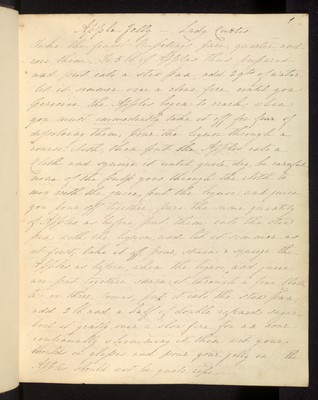 1
Apple Jelly — Lady
Take the finest pare, quarter, and
core them. To 5 lb of Apples thus prepared
and put into a stew pan add 2 qts of water
let it simmer over a slow fire until you
perceive the Apples begin to crack, when
you must immediately take it off for fear of
them, Pour the liquor through a
cloth, then put the Apples into a
Cloth and squeeze it until quite dry be careful
none of the pulp goes through the cloth to
mix with the juice, put the liquor, and juice
you have off together, pare the same quantity
of Apples as before put them into the stew
pan with the liquor, and let it simmer as
at first, take it off pour, strain & squeeze the
Apples as before, when the liquor, and juice
are put together strain it through a fine Cloth
2 or three times, put it into the stew pan
add 2 lb and a half of double refined sugar
boil it gently over a slow fire for an hour
continually skimming it, then wet your
moulds or shapes and pour your jelly in the
Apples should not be quite ripe